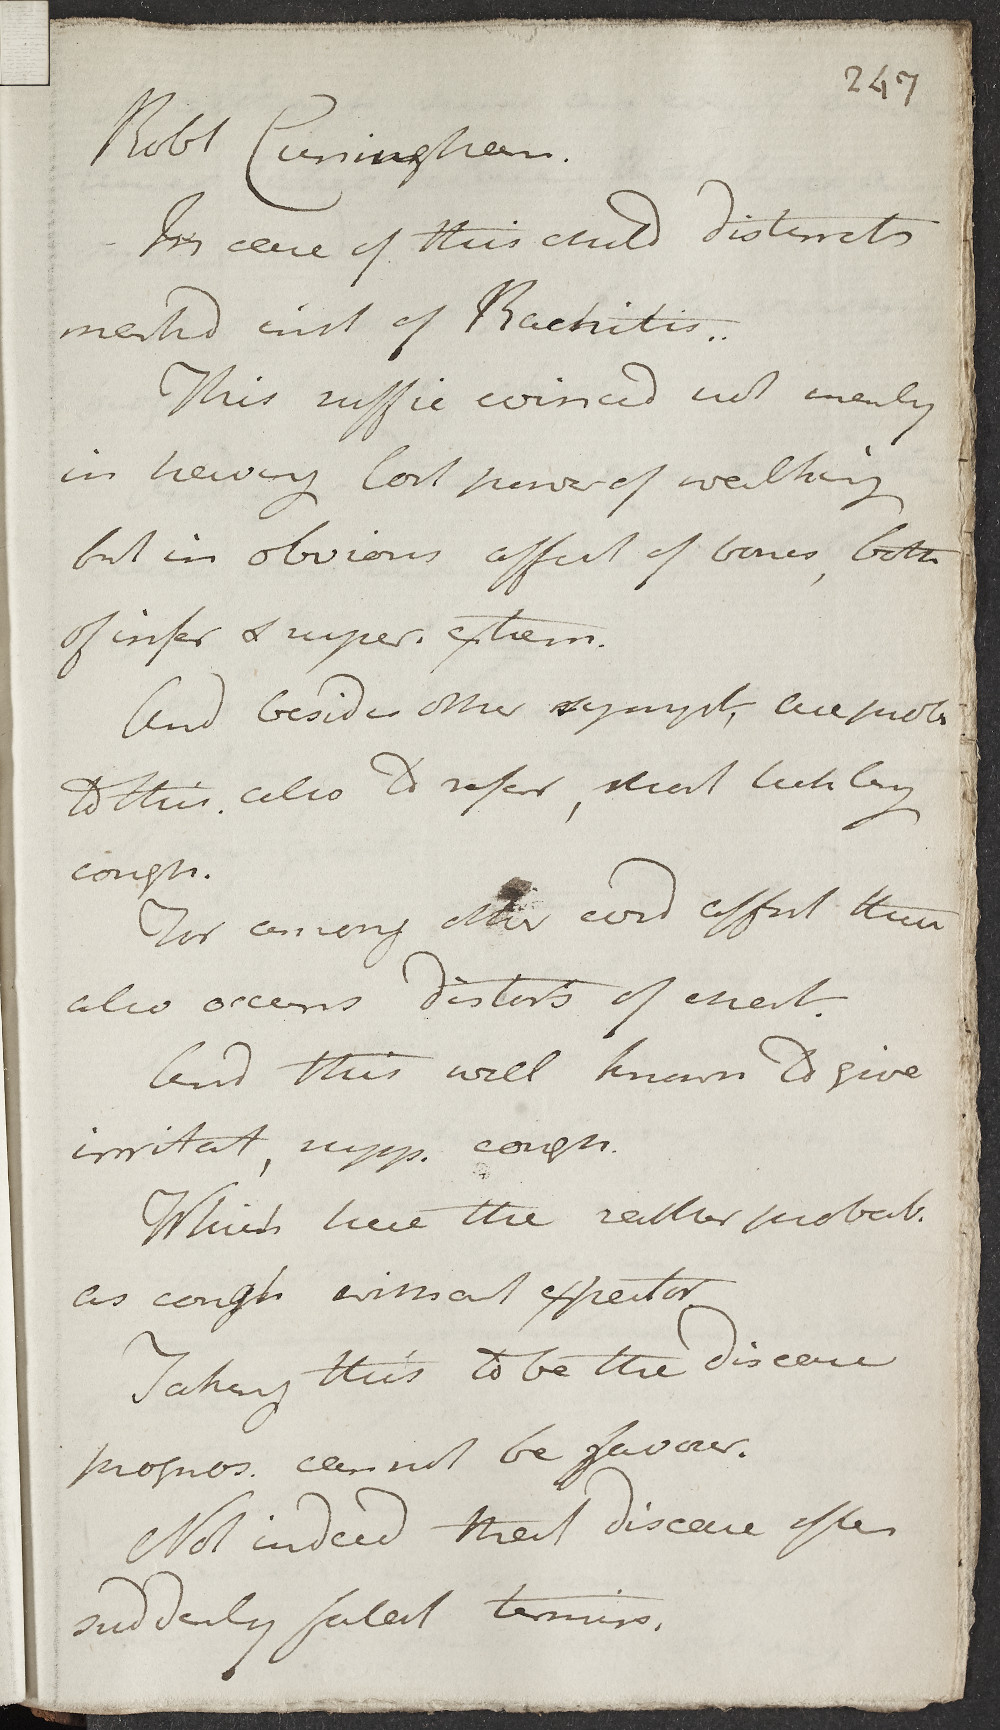 247
Robt Cuningham.
In case of this child distinctly
marked inst of Rachitis..
This suffic evinced not merely
in having lost power of walking
but in obvious affect of bones, both
of infer & super. extrem.
And besides other sympt, are prob
to this also to refer, short tickling
cough.
For among other affect there
also occurs distors of chest.
And this well known to give
irritat, supp. cough.
Which here the rather probab.
as cough without expector
Taking this to be the disease
prognos. cannot be favour.
Not indeed that disease often
suddenly fatal termin.